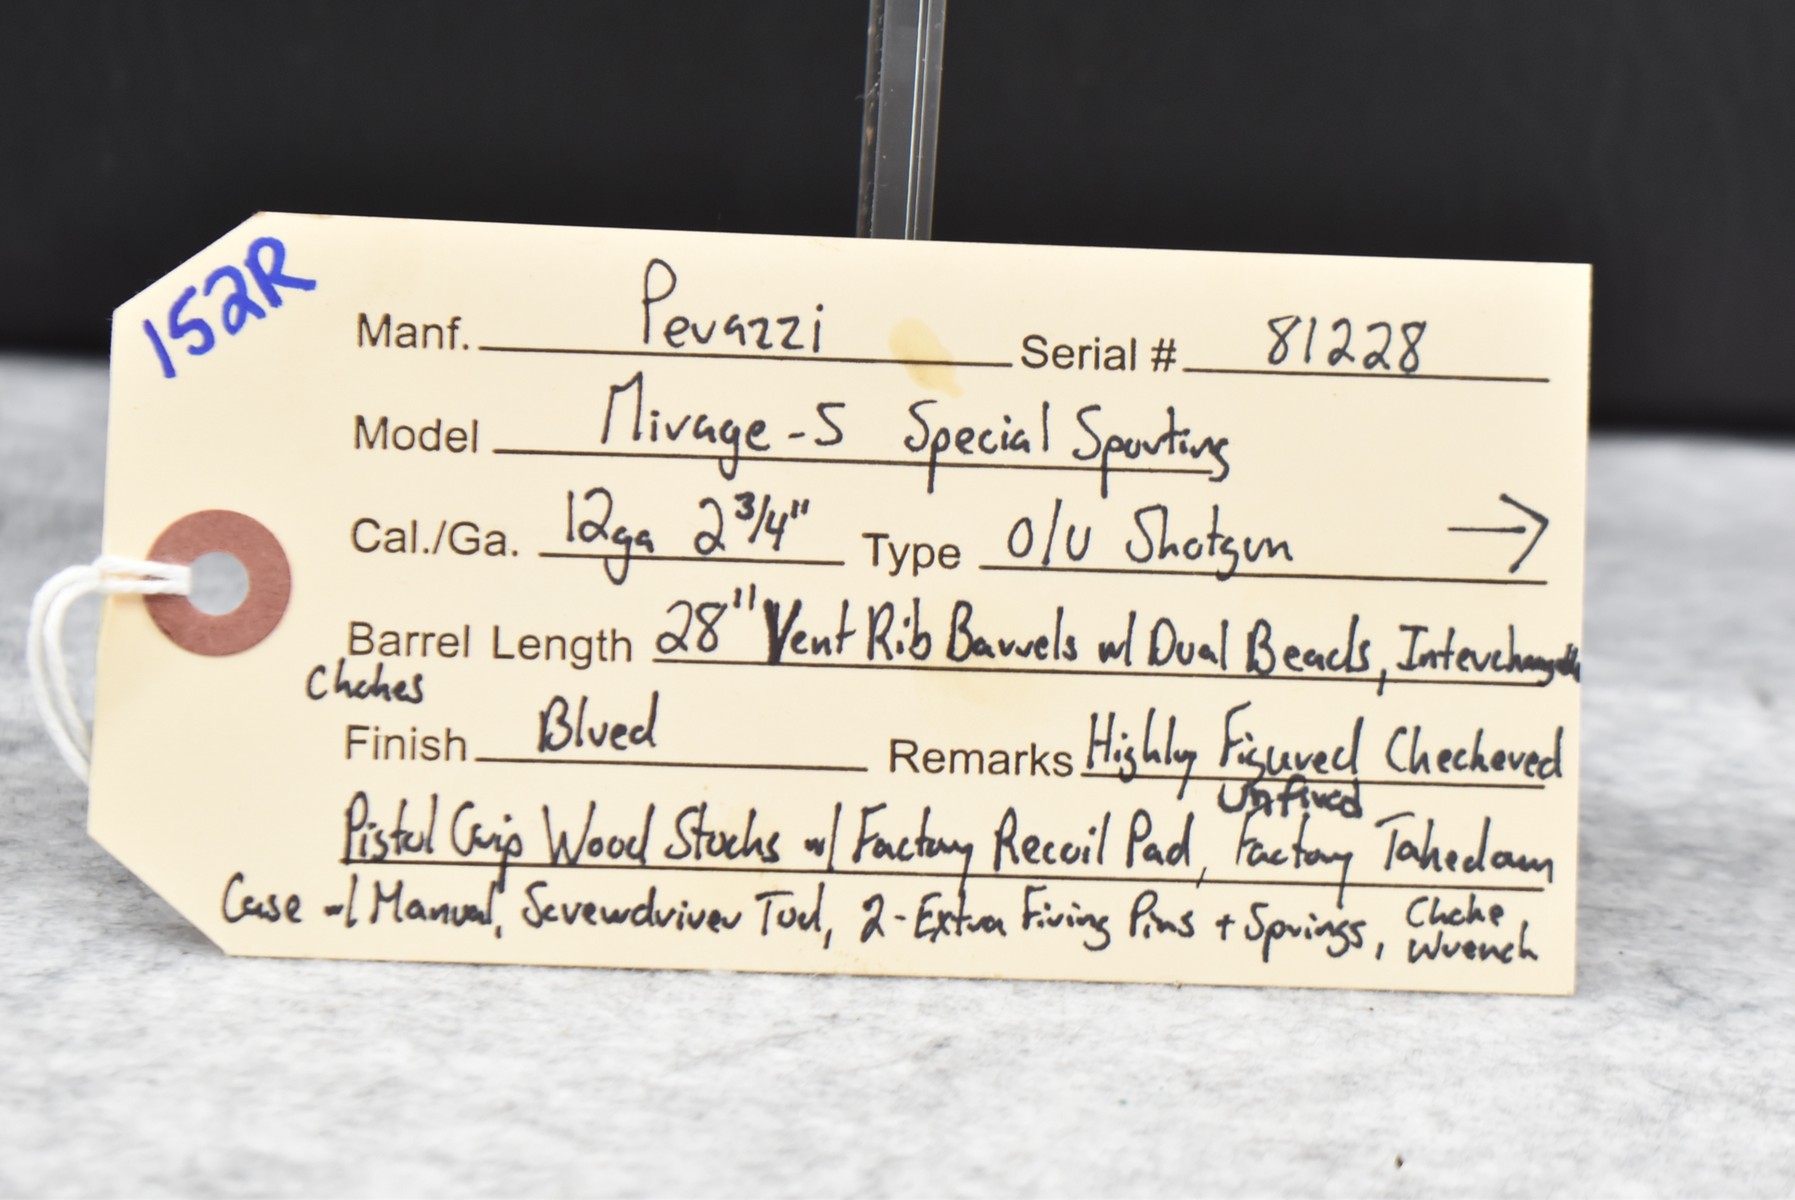 152R
Manf. Perazzi Serial # 81228
Model Mirage-S Special Sporting
Cal./Ga. 12ga 2 3/4" Type O/U Shotgun →
Barrel Length 28" Vent Rib Barrels w/ Dual Beads, Interchangeable
Chokes
Finish Blued Remarks Highly Figured Checkered
Unfired
Pistol Grip Wood Stocks w/ Factory Recoil Pad, Factory Takedown
Case w/ Manual, Screwdriver Tool, 2-Extra Firing Pins + Springs, Choke
Wrench